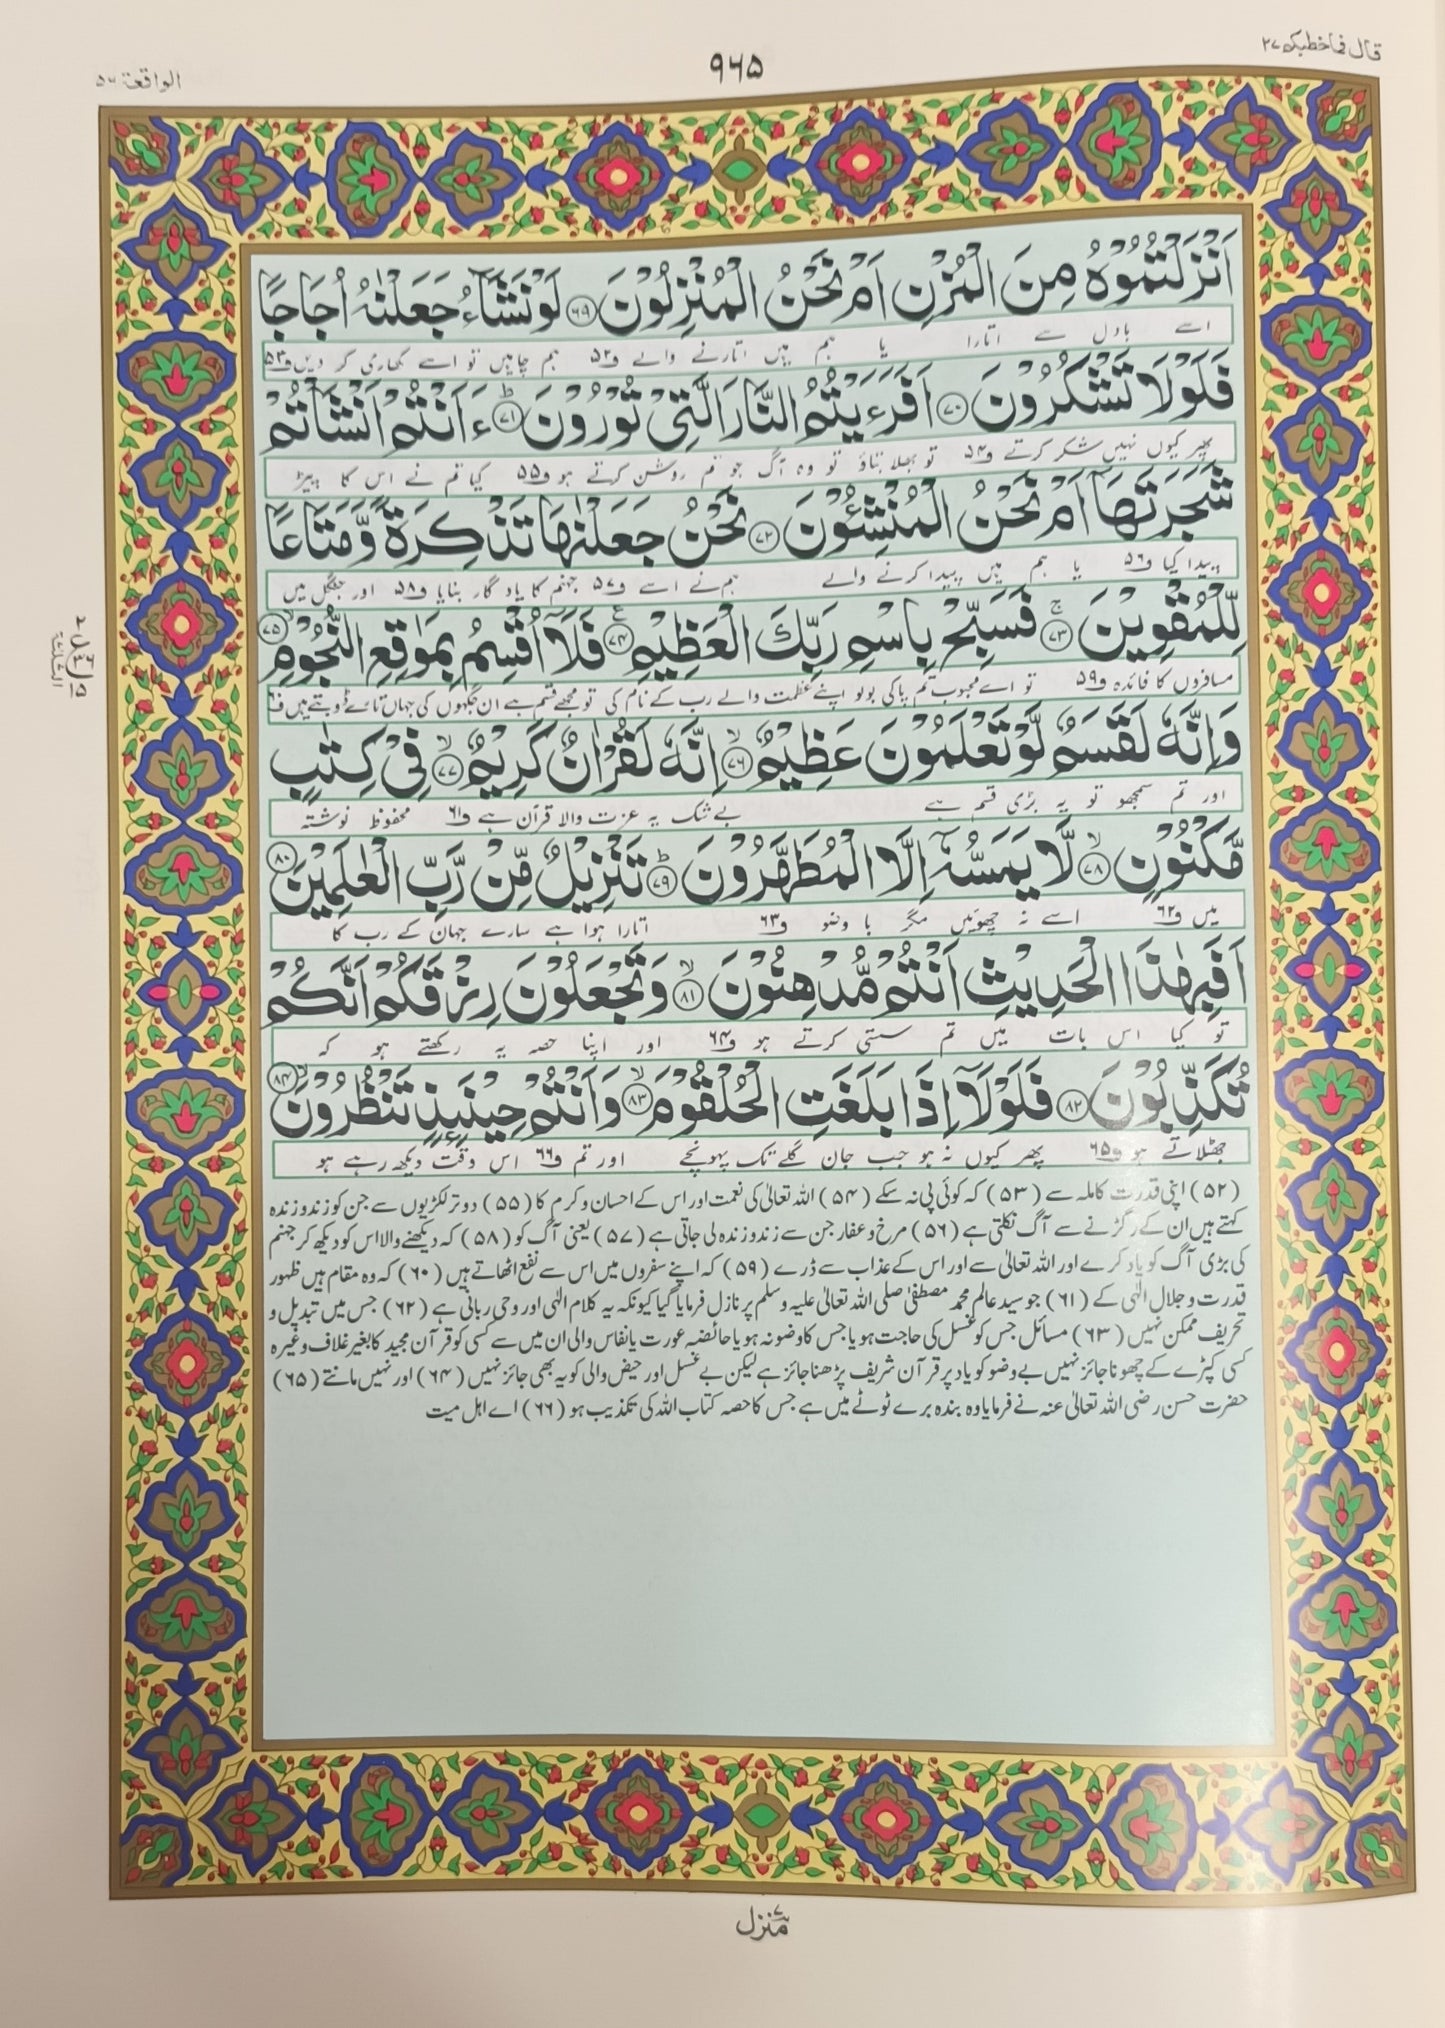 قال فما خطبكم ٢٧
٩٦٥
الواقعة ٥٦
اَنْزَلْتُمُوْهُ مِنَ الْمُزْنِ اَمْ نَحْنُ الْمُنْزِلُوْنَ ﴿٦٩﴾ لَوْ نَشَآءُ جَعَلْنٰهُ اُجَاجًا
اسے بادل سے اتارا یا ہم ہیں اتارنے والے ف۵۲ ہم چاہیں تو اسے کھاری کر دیں ف۵۳
فَلَوْلَا تَشْكُرُوْنَ ﴿٧٠﴾ اَفَرَءَيْتُمُ النَّارَ الَّتِيْ تُوْرُوْنَ ﴿٧١﴾ؕ ءَاَنْتُمْ اَنْشَاْتُمْ
پھر کیوں نہیں شکر کرتے ف۵۴ تو بھلا بتاؤ تو وہ آگ جو تم روشن کرتے ہو ف۵۵ کیا تم نے اس کا پیڑ
شَجَرَتَهَاۤ اَمْ نَحْنُ الْمُنْشِـُٔوْنَ ﴿٧٢﴾ نَحْنُ جَعَلْنٰهَا تَذْكِرَةً وَّمَتَاعًا
پیدا کیا ف۵۶ یا ہم ہیں پیدا کرنے والے ہم نے اسے ف۵۷ جہنم کا یادگار بنایا ف۵۸ اور جنگل میں
لِّلْمُقْوِيْنَ ﴿٧٣﴾ۚ فَسَبِّحْ بِاسْمِ رَبِّكَ الْعَظِيْمِ ﴿٧٤﴾ؒ فَلَاۤ اُقْسِمُ بِمَوٰقِعِ النُّجُوْمِ ﴿٧٥﴾ۙ
مسافروں کا فائدہ ف۵۹ تو اے محبوب تم پاکی بولو اپنے عظمت والے رب کے نام کی تو مجھے قسم ہے ان جگہوں کی جہاں تارے ڈوبتے ہیں ف۶۰
وَاِنَّهٗ لَقَسَمٌ لَّوْ تَعْلَمُوْنَ عَظِيْمٌ ﴿٧٦﴾ۙ اِنَّهٗ لَقُرْاٰنٌ كَرِيْمٌ ﴿٧٧﴾ۙ فِيْ كِتٰبٍ
اور تم سمجھو تو یہ بڑی قسم ہے بے شک یہ عزت والا قرآن ہے ف۶۱ محفوظ نوشتہ
مَّكْنُوْنٍ ﴿٧٨﴾ۙ لَّا يَمَسُّهٗۤ اِلَّا الْمُطَهَّرُوْنَ ﴿٧٩﴾ؕ تَنْزِيْلٌ مِّنْ رَّبِّ الْعٰلَمِيْنَ ﴿٨٠﴾
میں ف۶۲ اسے نہ چھوئیں مگر با وضو ف۶۳ اتارا ہوا ہے سارے جہان کے رب کا
اَفَبِهٰذَا الْحَدِيْثِ اَنْتُمْ مُّدْهِنُوْنَ ﴿٨١﴾ۙ وَتَجْعَلُوْنَ رِزْقَكُمْ اَنَّكُمْ
تو کیا اس بات میں تم سستی کرتے ہو ف۶۴ اور اپنا حصہ یہ رکھتے ہو کہ
تُكَذِّبُوْنَ ﴿٨٢﴾ فَلَوْلَاۤ اِذَا بَلَغَتِ الْحُلْقُوْمَ ﴿٨٣﴾ۙ وَاَنْتُمْ حِيْنَىِٕذٍ تَنْظُرُوْنَ ﴿٨٤﴾ۙ
جھٹلاتے ہو ف۶۵ پھر کیوں نہ ہو جب جان گلے تک پہونچے اور تم ف۶۶ اس وقت دیکھ رہے ہو
(۵۲) اپنی قدرت کاملہ سے (۵۳) کہ کوئی پی نہ سکے (۵۴) اللہ تعالیٰ کی نعمت اور اس کے احسان و کرم کا (۵۵) دو تر لکڑیوں سے جن کو زند و زندہ
کہتے ہیں ان کے رگڑنے سے آگ نکلتی ہے (۵۶) مرخ و عفار جن سے زند و زندہ لی جاتی ہے (۵۷) یعنی آگ کو (۵۸) کہ دیکھنے والا اس کو دیکھ کر جہنم
کی بڑی آگ کو یاد کرے اور اللہ تعالیٰ سے اور اس کے عذاب سے ڈرے (۵۹) کہ اپنے سفروں میں اس سے نفع اٹھاتے ہیں (۶۰) کہ وہ مقام ہیں ظہور
قدرت و جلال الٰہی کے (۶۱) جو سید عالم محمد مصطفیٰ صلی اللہ تعالیٰ علیہ وسلم پر نازل فرمایا گیا کیونکہ یہ کلام الٰہی اور وحی ربانی ہے (۶۲) جس میں تبدیل و
تحریف ممکن نہیں (۶۳) مسائل جس کو غسل کی حاجت ہو یا جس کا وضو نہ ہو یا حائضہ عورت یا نفاس والی ان میں سے کسی کو قرآن مجید کا بغیر غلاف وغیرہ
کسی کپڑے کے چھونا جائز نہیں بے وضو کو یاد پر قرآن شریف پڑھنا جائز ہے لیکن بے غسل اور حیض والی کو یہ بھی جائز نہیں (۶۴) اور نہیں مانتے (۶۵)
حضرت حسن رضی اللہ تعالیٰ عنہ نے فرمایا وہ بندہ بڑے ٹوٹے میں ہے جس کا حصہ کتاب اللہ کی تکذیب ہو (۶۶) اے اہل میت
منزل